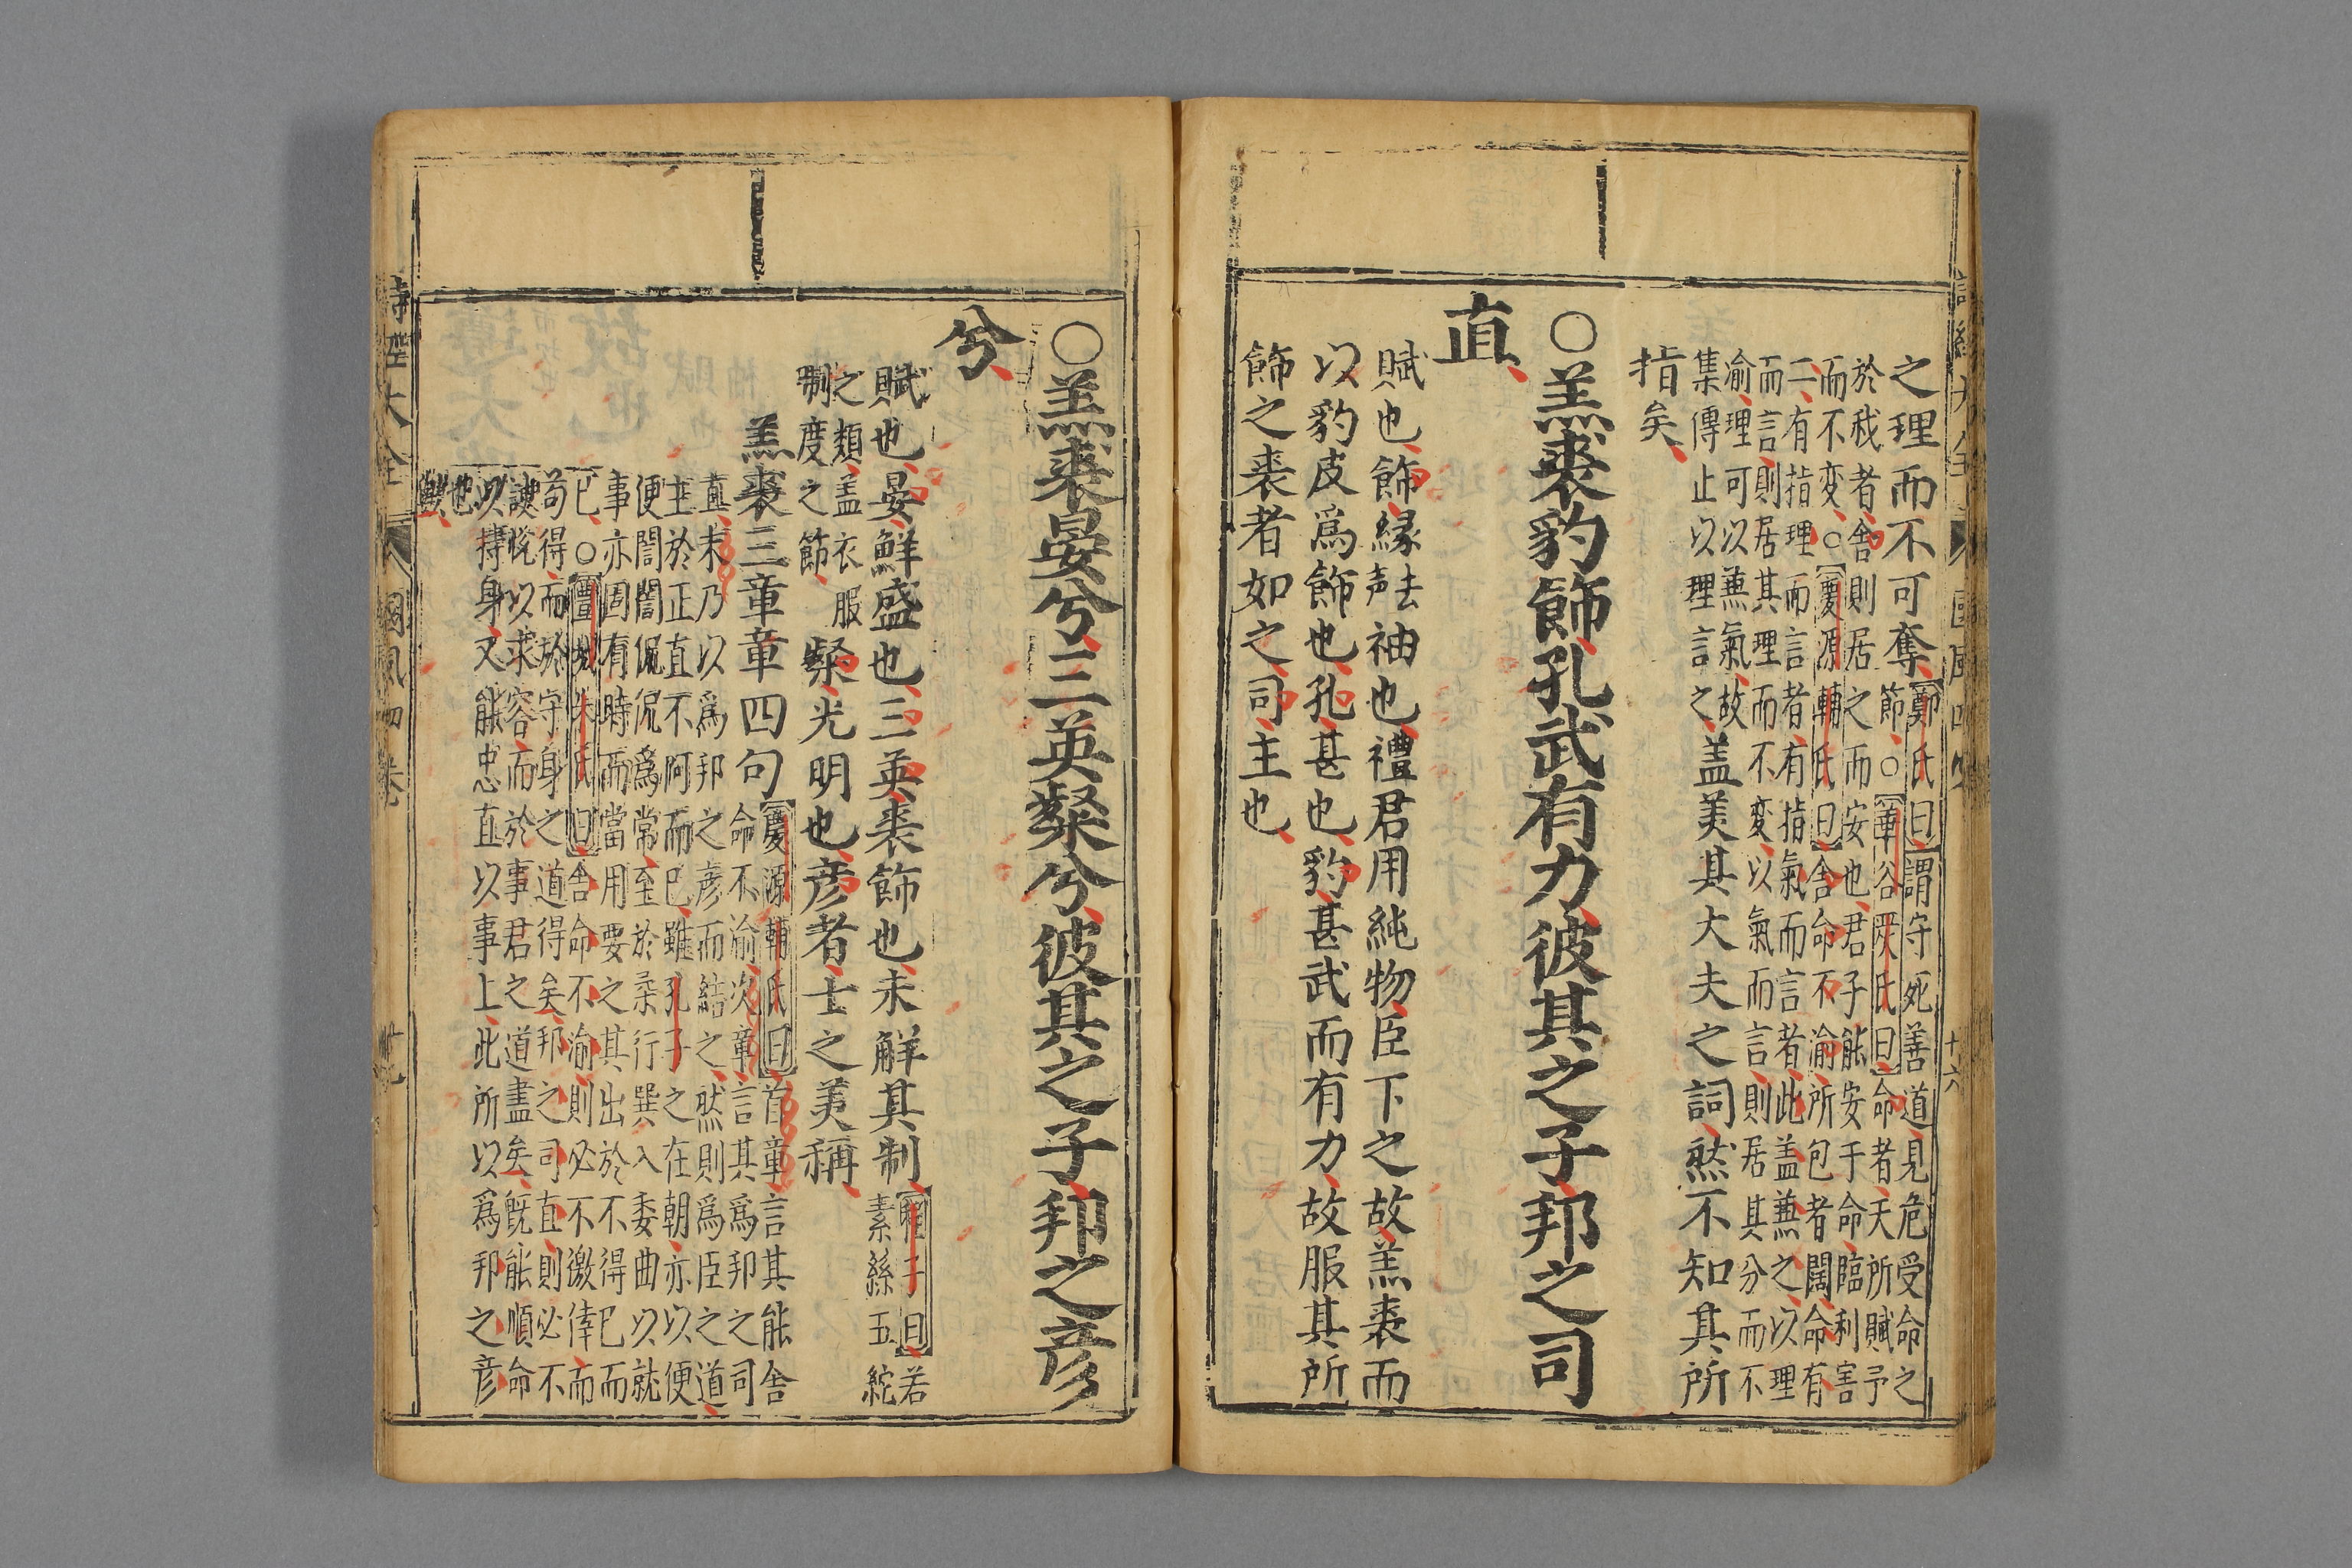 之理而不可奪鄭氏曰謂守死善道見危受命之
節○華谷嚴氏曰命者天所賦予
於我者舎則居之而安也君子能安于命臨利害
而不變○慶源輔氏曰舎命不渝所包者闊命有
二有指理而言者有指氣而言者此盖兼之以理
而言則居其理而不變以氣而言則居其分而不
渝理可以兼氣故
集傳止以理言之盖美其大夫之詞然不知其所
指矣
○羔裘豹飾孔武有力彼其之子邦之司
直
賦也飾縁去声袖也禮君用純物臣下之故羔裘而
以豹皮爲飾也孔甚也豹甚武而有力故服其所
飾之裘者如之司主也
十六
○羔裘晏兮三英粲兮彼其之子邦之彦
兮
賦也晏鮮盛也三英裘飾也未觧其制程子曰若
素絲五紽
之類盖衣服
制度之節粲光明也彦者士之美稱
羔裘三章章四句慶源輔氏曰首章言其能舎
命不渝次章言其爲邦之司
直末乃以爲邦之彦而結之然則爲臣之道
主於正直不阿而已雖孔子之在朝亦以便
便誾誾侃侃爲常至於柔行巽入委曲以就
事亦固有時而當用要之其出於不得已而
已○豐城朱氏曰舎命不渝則必不徼倖而
苟得而於守身之道得矣邦之司直則必不
諛悅以求容而於事君之道盡矣既能順命
以持身又能忠直以事上此所以爲邦之彦
也
歟
詩經大全
國風四卷